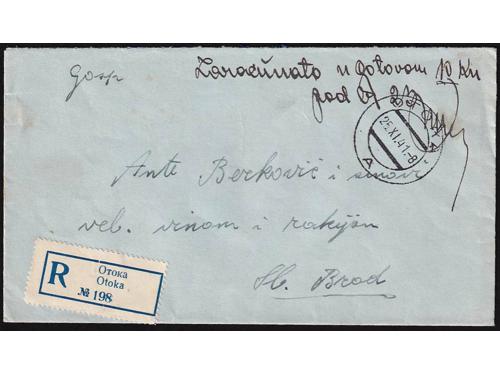 Gosp
Zaračunato u gotovom 10 Kn
pod
25.XI.41-8
A
Ante Berković i sinovi
vel. vinom i rakijom
Sl. Brod
R
Отока
Otoka
№ 198